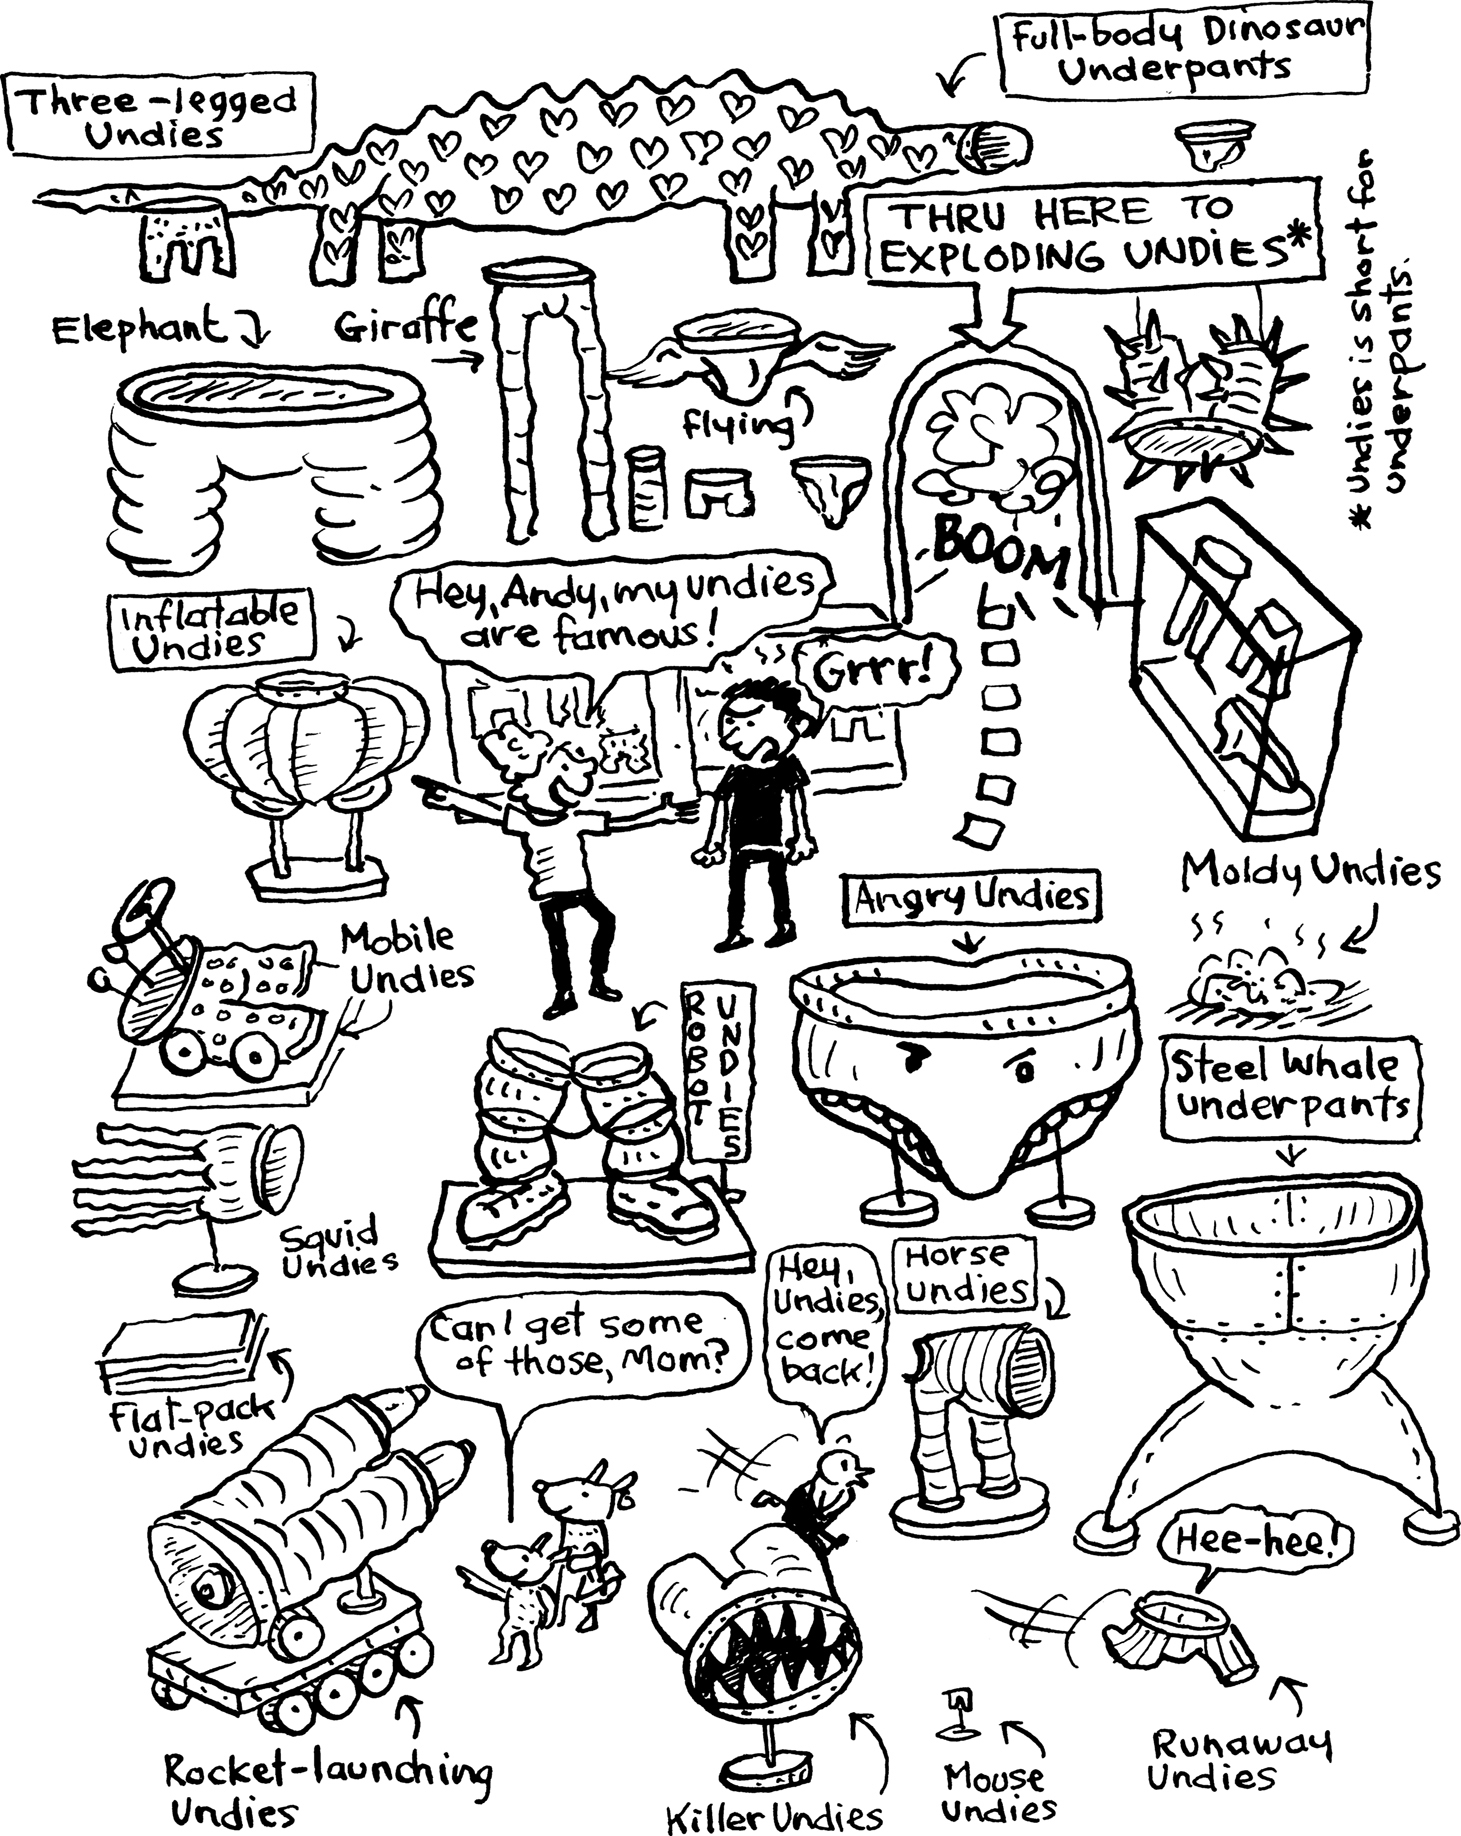 Full-body Dinosaur
Underpants
Three-legged
Undies
THRU HERE TO
EXPLODING UNDIES*
* undies is short for
underpants.
Elephant
Giraffe
flying
BOOM
Hey, Andy, my undies
are famous!
Grrr!
Inflatable
Undies
Moldy Undies
Angry Undies
Mobile
Undies
ROBOT
UNDIES
Steel Whale
underpants
Squid
Undies
Hey,
Undies,
come
back!
Horse
undies
Can I get some
of those, Mom?
Flat-pack
undies
Hee-hee!
Rocket-launching
Undies
Killer Undies
Mouse
undies
Runaway
Undies